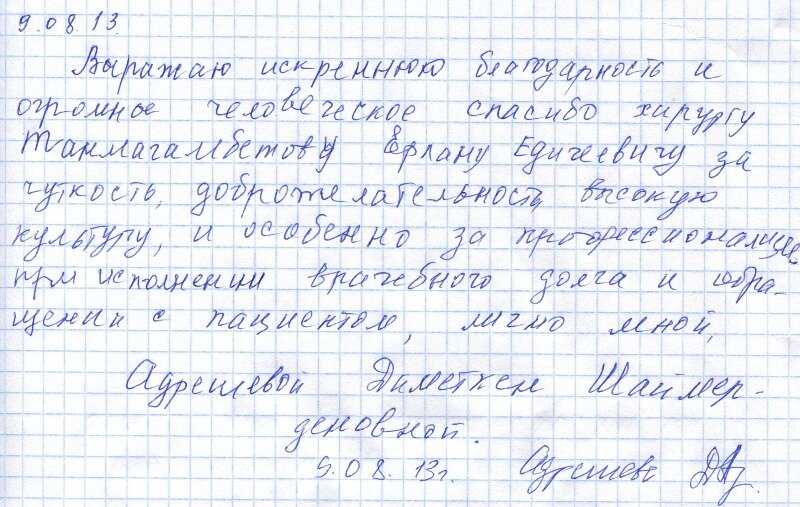 9.08.13.
Выражаю искреннюю благодарность и
огромное человеческое спасибо хирургу
Танмагамбетову Ерлану Едигеевичу за
чуткость, доброжелательность высокую
культуру, и особенно за профессионализм
при исполнении врачебного долга и обра-
щении с пациентом, лично мной,
Адрешевой Диметкен Шаймер-
деновной.
9.08.13г. Адрешева